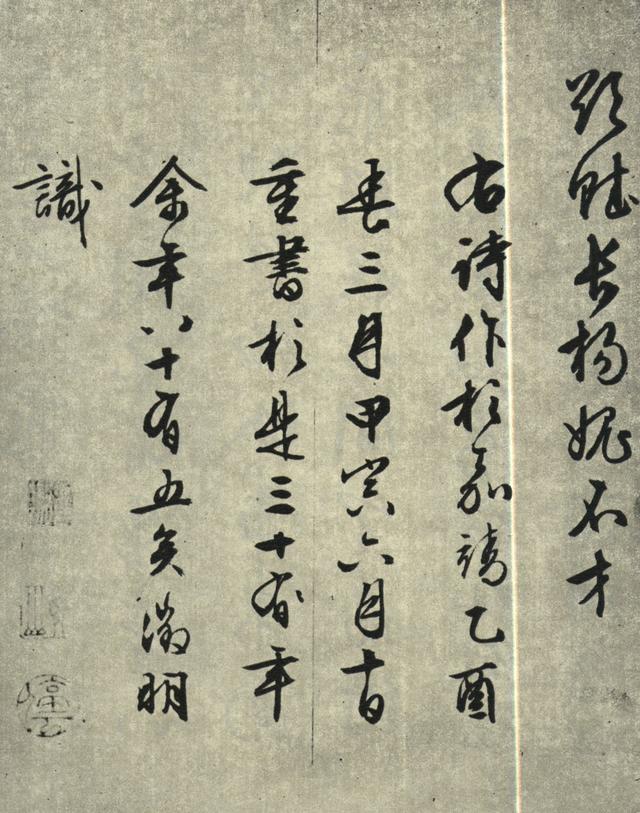 欲賦長楊媿不才
右詩作於嘉靖乙酉
春三月甲寅六月十日
重書於是三十有年
余年八十有五矣徵明
識
停雲